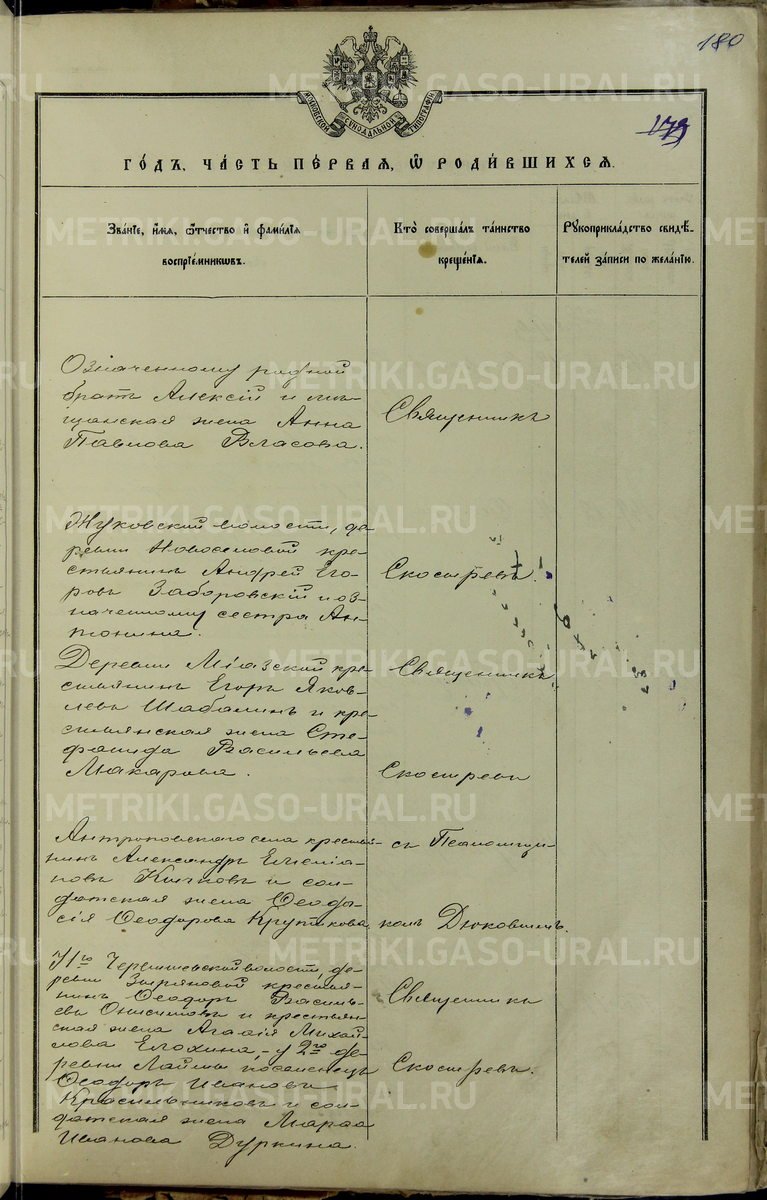 180
179
МОСКОВСКОЙ СѴНОДАЛЬНОЙ ТИПОГРАФІИ
ГО́ДЪ, ЧА́СТЬ ПЕ́РВАЯ, Ѿ РОДИ́ВШИХСЯ.
Зва́нїе, и́мя, ѻ҆́тчество и҆ фами́лїя
воспрїе́мникѡвъ.
Кто̀ соверша́лъ та́инство
креще́нїя.
Рꙋкоприкла́дство свидѣ́-
телей за́писи по жела́нїю.
Означенному родной
братъ Алексій и мѣ-
щанская жена Анна
Павлова Власова.
Священникъ
Жуковской волости, де
ревни Новоселовой кре-
стьянинъ Андрей Его-
ровъ Заборовскій и оз
наченному сестра Ан-
тонина.
Скосыревъ.
Деревни Міазской кре-
стьянинъ Егоръ Яков-
левъ Шабалинъ и кре-
стьянская жена Сте-
фанида Васильева
Макарова.
Священникъ
Скосыревъ
Антроповского села крестья-
нинъ Александръ Емеліа-
новъ Кычковъ и сол-
датская жена Ѳеодо-
сія Ѳеодорова Крутикова
съ Псаломщи-
комъ Дюковымъ.
У 1го Черемшевской волости, де-
ревни Зыряновой крестья-
нинъ Ѳеодоръ Василь-
евъ Онисимовъ и крестьян-
ская жена Агафія Михай-
лова Елохина, - у 2го де-
ревни Лаймы поселенецъ
Ѳеодоръ Ивановъ
Красильниковъ и сол-
датская жена Марѳа
Иванова Дуркина.
Священникъ
Скосыревъ.
METRIKI.GASO-URAL.RU